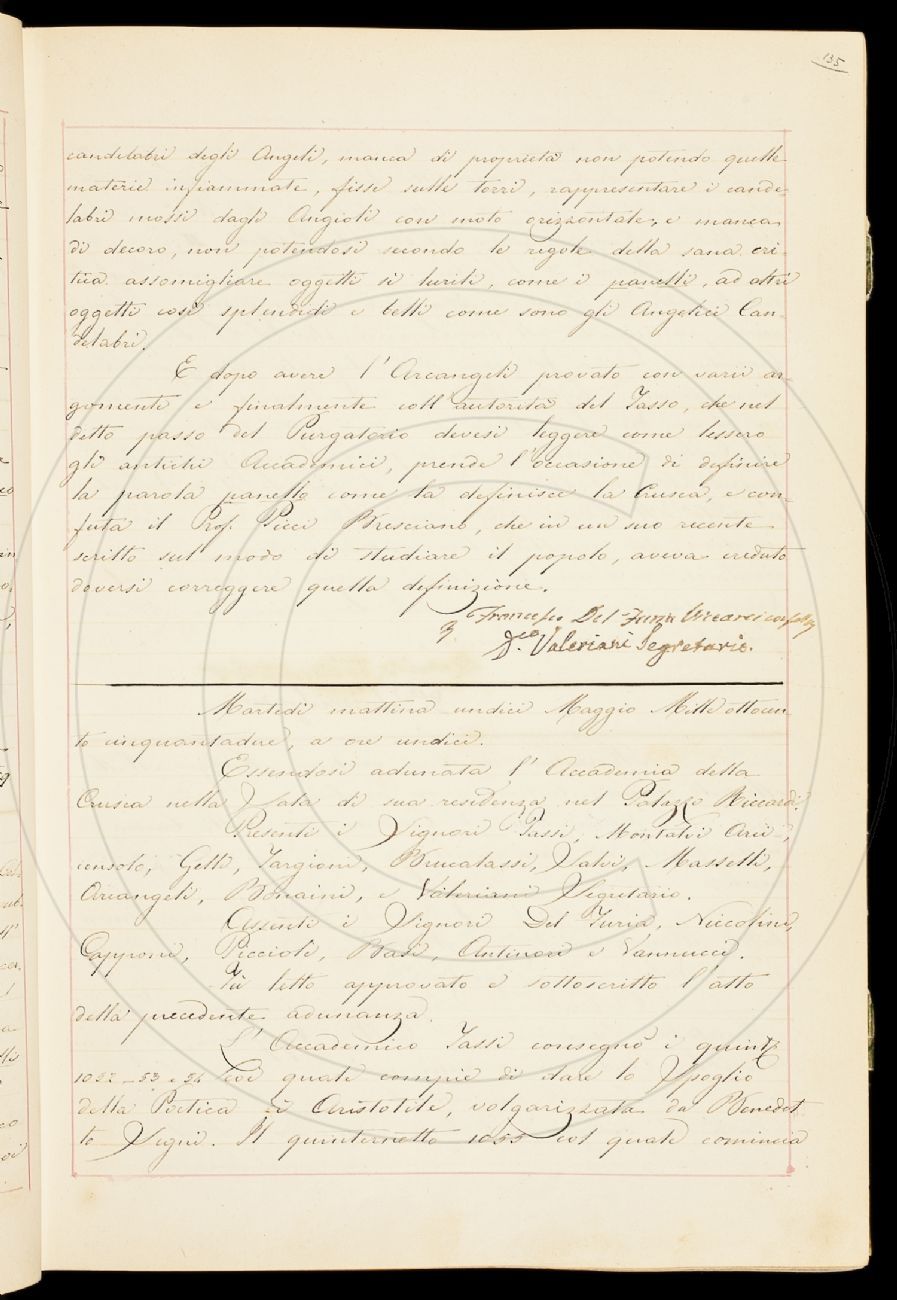 135
candelabri degli Angeli, manca di proprietà non potendo quelle
materie infiammate, fisse sulle torri, rappresentare i cande-
labri mossi dagli Angioli con moto orizzontale; e manca
di decoro, non potendosi secondo le regole della sana cri-
tica assomigliare oggetti sì lurili, come i panelli, ad altri
oggetti così splendidi e belli come sono gli Angelici Can-
delabri.
E dopo avere l'Arcangeli provato con varii ar-
gomenti e finalmente coll'autorità del Tasso, che nel
detto passo del Purgatorio devesi leggere come lessero
gli antichi Accademici, prende l'occasione di definire
la parola panello come la definisce la Crusca, e con-
futa il Prof. Picci Bresciano, che in un suo recente
scritto sul modo di studiare il popolo, aveva creduto
doversi correggere quella definizione.
Francesco Del Furia
Valeriani Segretario.
Martedì mattina undici Maggio Mille ottocen-
to cinquantadue, a ore undici.
Essendosi adunata l'Accademia della
Crusca nella Sala di sua residenza nel Palazzo Riccardi
Presenti i Signori Tassi, Montalvi Arci-
consolo, Gelli, Targioni, Brucalassi, Salvi, Masselli,
Arcangeli, Bonaini, e Valeriani Segretario.
Assenti i Signori Del Furia, Niccolini,
Capponi, Piccioli, Basi, Antinori e Vannucci.
Fù letto approvato e sottoscritto l'atto
della precedente adunanza.
L'Accademico Tassi consegnò i quint.
1052_53 e 54 coi quali compiè di dare lo Spoglio
della Poetica di Aristotile, volgarizzata da Benedet-
to Segni. Il quinternetto 1055 col quale comincia